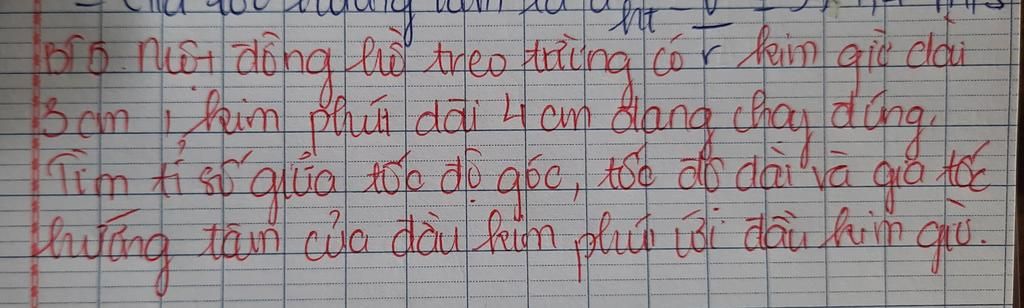 Một đồng hồ treo tường có kim giờ dài
3cm, kim phút dài 4cm đang chạy đúng.
Tìm tỉ số giữa tốc độ góc, tốc độ dài và gia tốc
hướng tâm của đầu kim phút với đầu kim giờ.